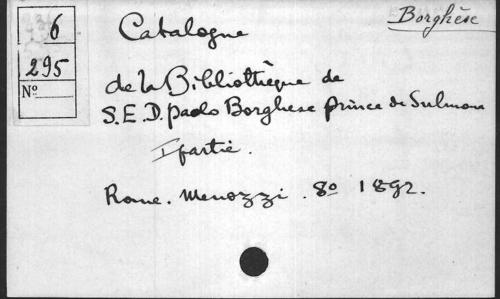 Borghèse
6
295
Nº
Catalogue
de la Bibliothèque de
S.E.D. paolo Borghese prince de Sulmona
I partie.
Rome. Menozzi. 8º 1892.